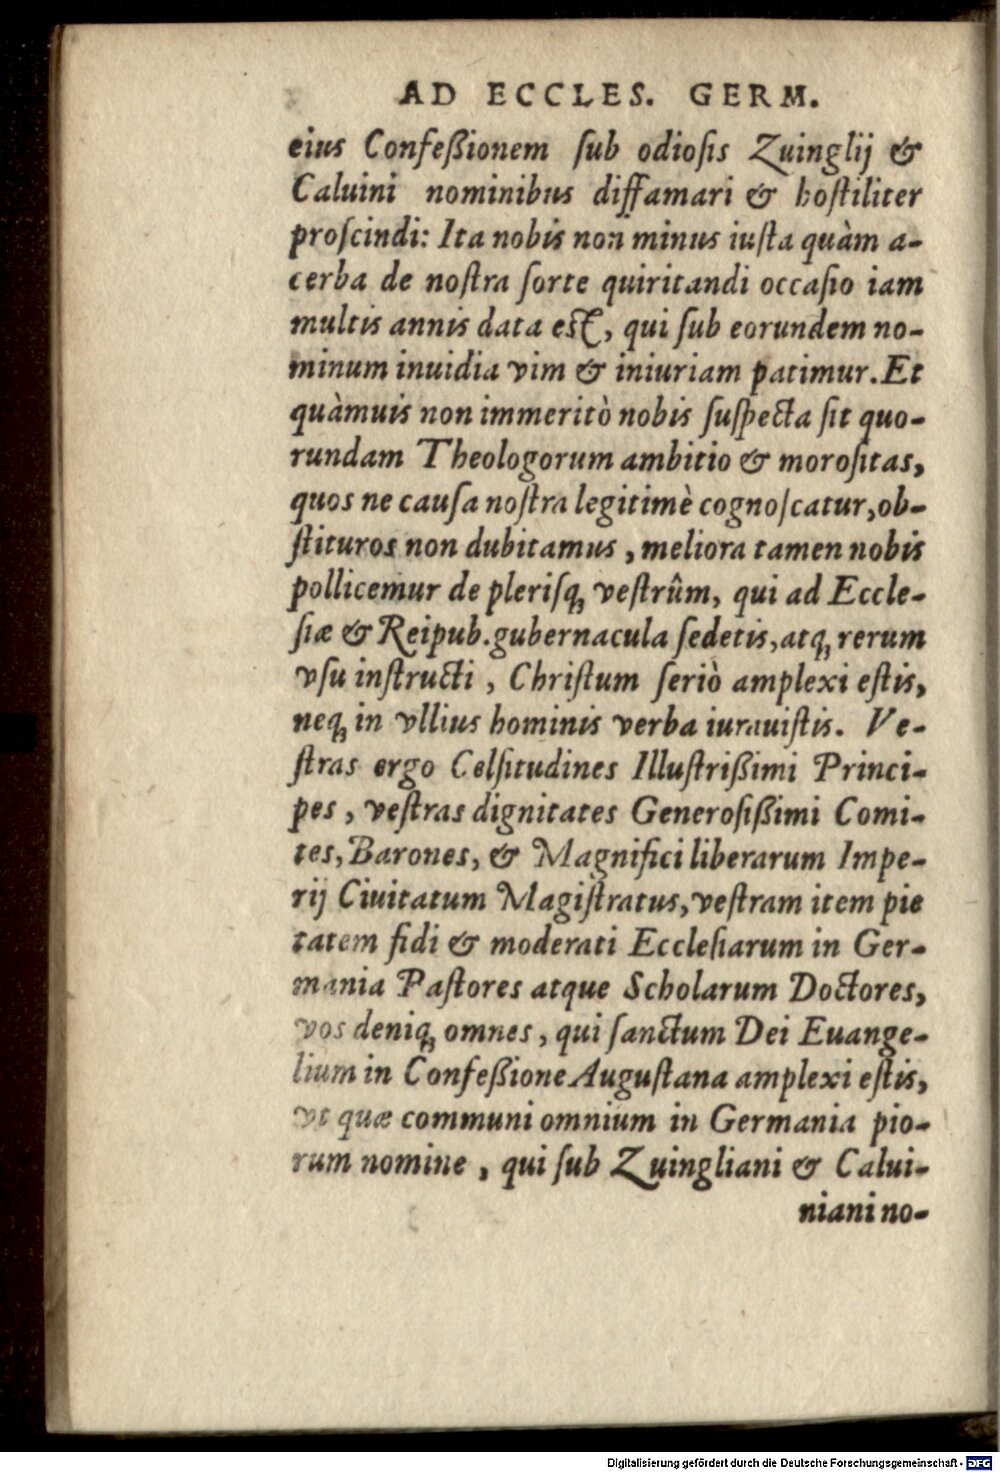 AD ECCLES. GERM.
eius Confeßionem ſub odioſis Zuinglij &
Caluini nominibus diffamari & hoſtiliter
proſcindi: Ita nobis non minus iuſta quàm a-
cerba de noſtra ſorte quiritandi occaſio iam
multis annis data eſt, qui ſub eorundem no-
minum inuidia vim & iniuriam patimur. Et
quàmuis non immeritò nobis ſuſpecta ſit quo-
rundam Theologorum ambitio & moroſitas,
quos ne cauſa noſtra legitimè cognoſcatur, ob-
ſtituros non dubitamus, meliora tamen nobis
pollicemur de pleriſq; veſtrûm, qui ad Eccle-
ſiæ & Reipub. gubernacula ſedetis, atq; rerum
vſu inſtructi, Chriſtum ſeriò amplexi eſtis,
neq; in vllius hominis verba iurauiſtis. Ve-
ſtras ergo Celſitudines Illuſtrißimi Princi-
pes, veſtras dignitates Generoſißimi Comi-
tes, Barones, & Magnifici liberarum Impe-
rij Ciuitatum Magiſtratus, veſtram item pie
tatem fidi & moderati Eccleſiarum in Ger-
mania Paſtores atque Scholarum Doctores,
vos deniq; omnes, qui ſanctum Dei Euange-
lium in Confeßione Auguſtana amplexi eſtis,
vt quæ communi omnium in Germania pio-
rum nomine, qui ſub Zuingliani & Calui-
niani no-
Digitalisierung gefördert durch die Deutsche Forschungsgemeinschaft - DFG